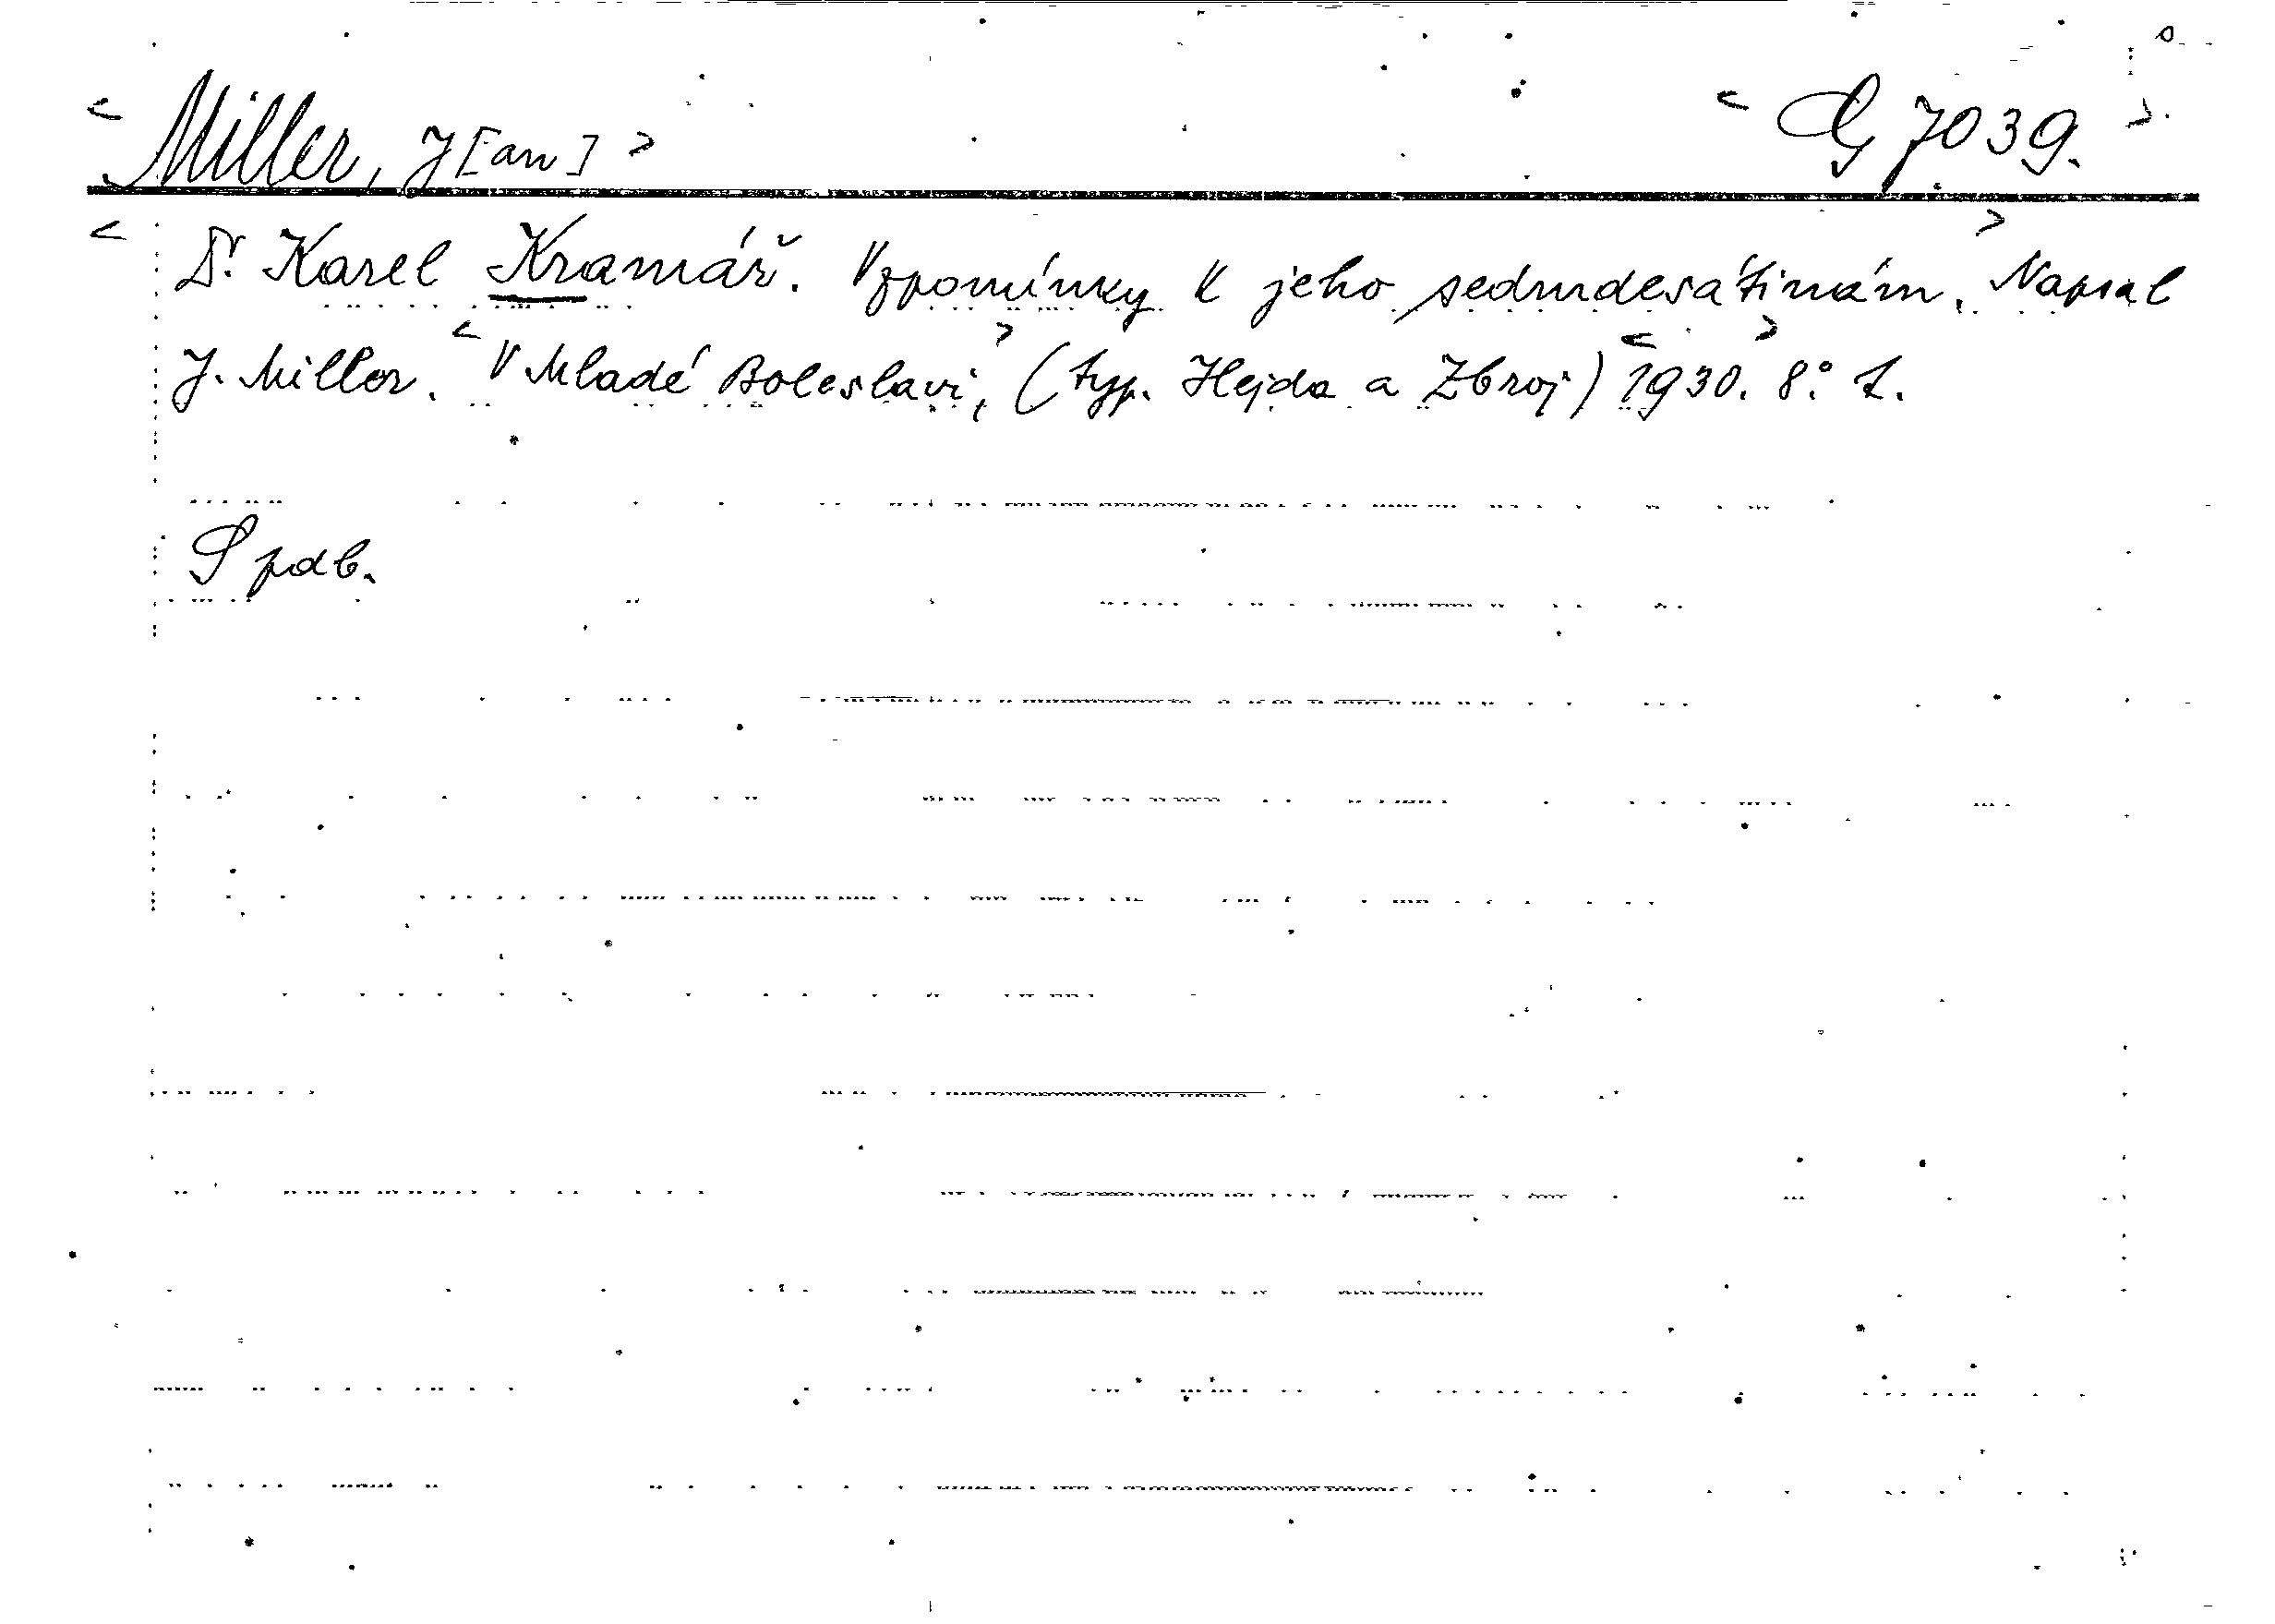 < Miller, J[an] > < G 7039. >
< Dr. Karel Kramář. Vzpomínky k jeho sedmdesátinám. > Napsal
J. Miller. < V Mladé Boleslavi, > (typ. Hejda a Zbroj) < 1930. > 8° 1.
S podb.